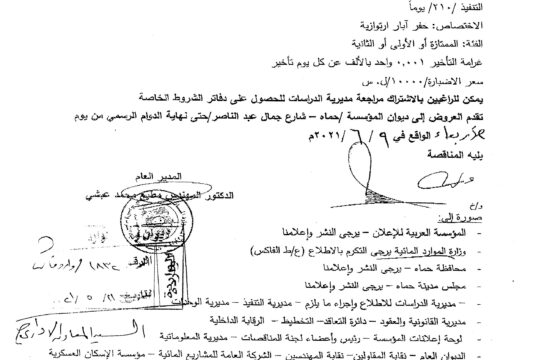 التنفيذ /٢١٠/ يوماً
الاختصاص: حفر آبار ارتوازية
الفئة: الممتازة أو الأولى أو الثانية
غرامة التأخير ٠,٠٠١ واحد بالألف عن كل يوم تأخير
سعر الاضبارة/١٠٠٠٠/ل.س
يمكن للراغبين بالاشتراك مراجعة مديرية الدراسات للحصول على دفاتر الشروط الخاصة
تقدم العروض إلى ديوان المؤسسة /حماه – شارع جمال عبد الناصر/حتى نهاية الدوام الرسمي من يوم
الأربعاء الواقع في ٩ / ٦ /٢٠٢١م
يليه المناقصة
المدير العام
الدكتور المهندس مطيع محمد عبشي
و/خ
صورة إلى:
- المؤسسة العربية للإعلان – يرجى النشر وإعلامنا
- وزارة الموارد المائية يرجى التكرم بالاطلاع (ع/ط الفاكس)
- محافظة حماه – يرجى النشر وإعلامنا
- مجلس مدينة حماه – يرجى النشر وإعلامنا
- مديرية الدراسات للاطلاع وإجراء ما يلزم – مديرية التنفيذ – مديرية الوحدات
- مديرية القانونية والعقود – دائرة التعاقد – التخطيط – الرقابة الداخلية
- لوحة إعلانات المؤسسة – رئيس وأعضاء لجنة المناقصات – مديرية المعلوماتية
- الديوان العام – نقابة المقاولين – نقابة المهندسين – الشركة العامة للمشاريع المائية – مؤسسة الإسكان العسكرية
الرقم ١٨٣٢